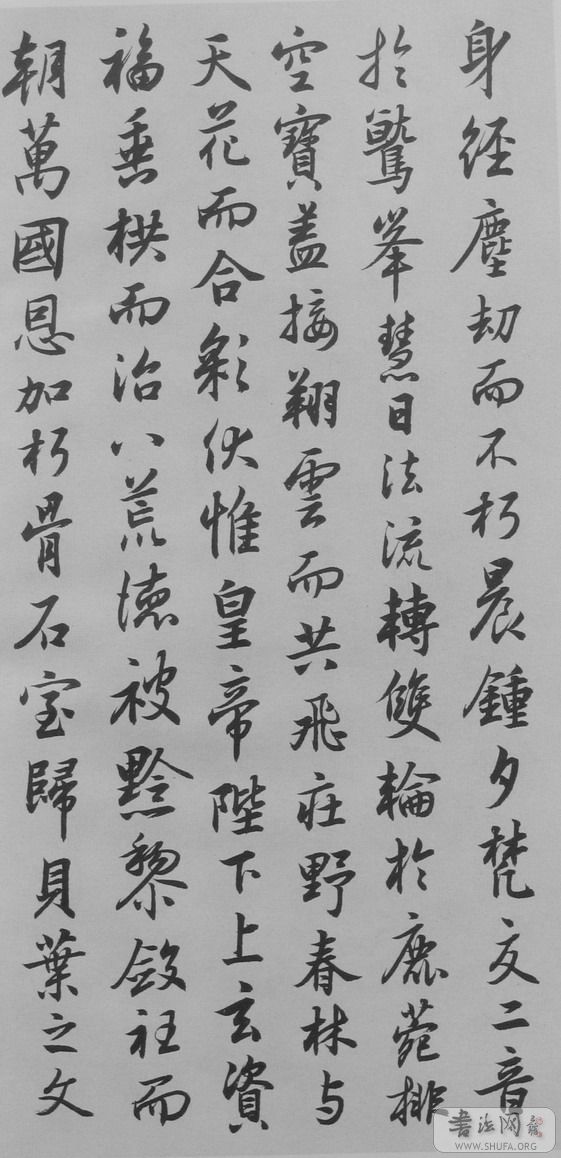 身經塵劫而不朽晨鍾夕梵交二音
於鷲峯慧日法流轉雙輪於鹿菀排
空寶盖接翔雲而共飛莊野春林与
天花而合彩伏惟皇帝陛下上玄資
福垂栱而治八荒德被黔黎斂衽而
朝萬國恩加朽骨石室歸貝葉之文
書法网
WWW.SHUFA.ORG